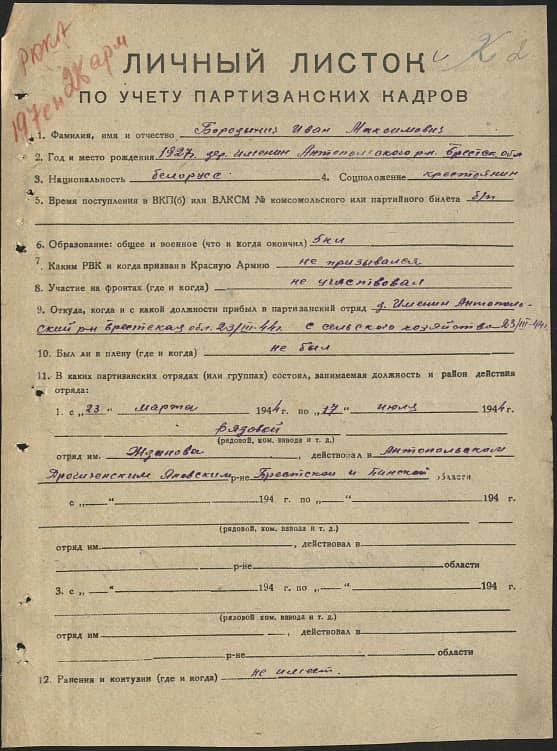 РККА
197сп 2К арм
К 2
ЛИЧНЫЙ ЛИСТОК
ПО УЧЕТУ ПАРТИЗАНСКИХ КАДРОВ
1. Фамилия, имя и отчество Бородинич Иван Максимович
2. Год и место рождения 1927г. дер. Именин Антопольского рн. Брестск. обл
3. Национальность белорусс 4. Соцположение крестьянин
5. Время поступления в ВКП(б) или ВЛКСМ № комсомольского или партийного билета б/п
6. Образование: общее и военное (что и когда окончил) 5кл
7. Каким РВК и когда призван в Красную Армию не призывался
8. Участие на фронтах (где и когда) не участвовал
9. Откуда, когда и с какой должности прибыл в партизанский отряд д. Именин Антополь-
ский рн Брестская обл. 23/III-44г. с сельского хозяйства 23/III-44г.
10. Был ли в плену (где и когда) не был
11. В каких партизанских отрядах (или группах) состоял, занимаемая должность и район действия
отряда:
1. с „23" марта 1944 г. по „17" июля 1944 г.
рядовой
(рядовой, ком. взвода и т. д.)
отряд им. Жданова, действовал в Антопольском
Дрогиченским Яновским р-не Брестской и Пинской области
с „ — " 194 г. по „ — " 194 г.
(рядовой, ком. взвода и т. д.)
отряд им. , действовал в
р-не области
3. с „ — " 194 г. по „ — " 194 г.
(рядовой, ком. взвода и т. д.)
отряд им , действовал в
р-не области
12. Ранения и контузии (где и когда) не имеет.